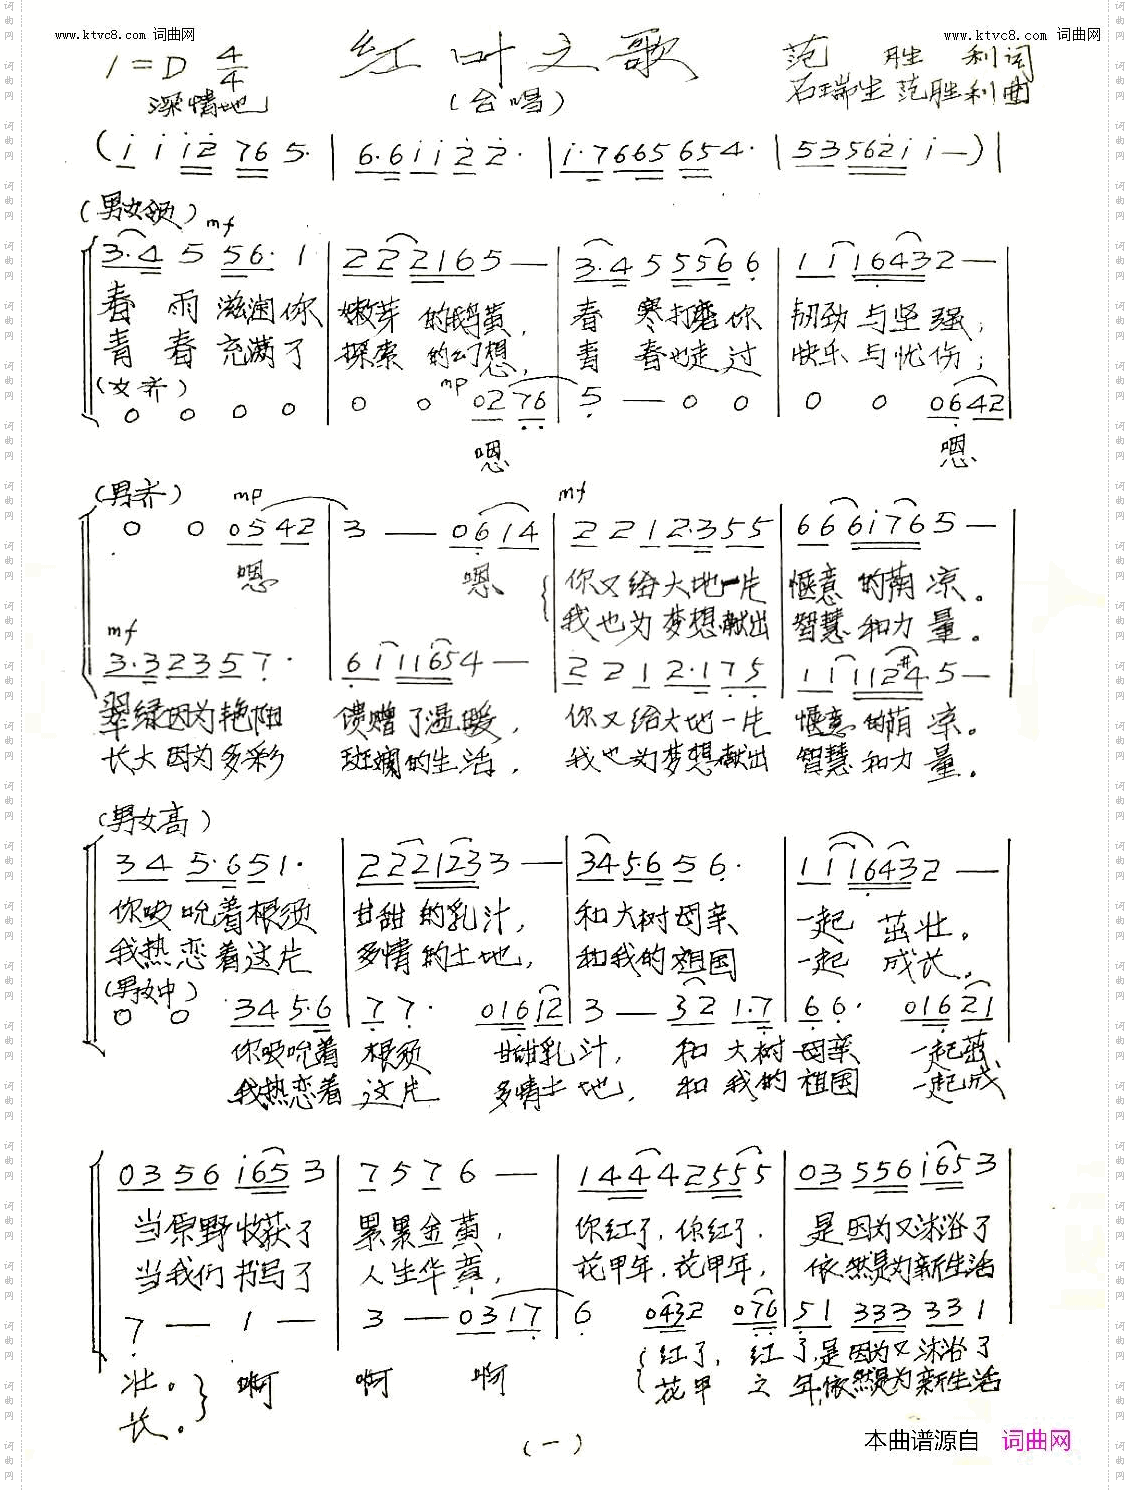 www.ktvc8.com 词曲网
www.ktvc8.com 词曲网
红叶之歌
1=D 4/4
范胜利词
深情地
(合唱)
石瑞生 范胜利曲
(i i i2 76 5· | 6·6 i i 2 2· | i·7665 654· | 53 562i i—)|
(男女领) mf
3·4 5 56· 1 | 22 2 2165— | 3·4 5 556 6 | 1 1 16432—
春雨滋润你 嫩芽的鹅黄, 春寒打磨你 韧劲与坚强;
青春充满了 探索的幻想, 青春也走过 快乐与忧伤;
(女齐) mp
0 0 0 0 | 0 0 02 76 | 5 — 0 0 | 0 0 06 42
嗯 嗯
(男齐) mp mf
0 0 05 42 | 3 — 06 14 | 2 2 1 2·3 5 5 | 6 6 6i76 5 —
嗯 嗯 你又给大地一片 惬意的荫凉。
我也为梦想献出 智慧和力量。
mf
3·3 2 3 5 7· | 6 1 11654 — | 2 2 1 2·1 7 5 | 1 1 112#4 5 —
翠绿因为艳阳 馈赠了温暖, 你又给大地一片 惬意的荫凉。
长大因为多彩 斑斓的生活, 我也为梦想献出 智慧和力量。
(男女高)
34 5·6 5 1· | 2 2 2123 3 — | 34 5·6 5 6· | 1 1 16432 —
你吸吮着根须 甘甜的乳汁, 和大树母亲 一起茁壮。
我热恋着这片 多情的土地, 和我的祖国 一起成长。
(男女中)
0 0 34 5·6 | 7 7· 016 12 | 3 — 32 1·7 | 6 6· 016 21
你吸吮着 根须 甘甜乳汁, 和大树 母亲 一起茁
我热恋着 这片 多情土地, 和我的 祖国 一起成
03 56 i65 3 | 7 5 7 6 — | 144 4 255 5 | 03 556 i65 3
当原野收获了 累累金黄, 你红了,你红了, 是因为又沐浴了
当我们书写了 人生华章, 花甲年,花甲年, 依然是为新生活
7 — 1 — | 3 — 03 17 | 6 0432 076 | 51 333 33 1
壮。 啊 啊 啊 红了, 红了,是因为又沐浴了
长。 花甲之年,依然是为新生活
(一)
本曲谱源自 词曲网